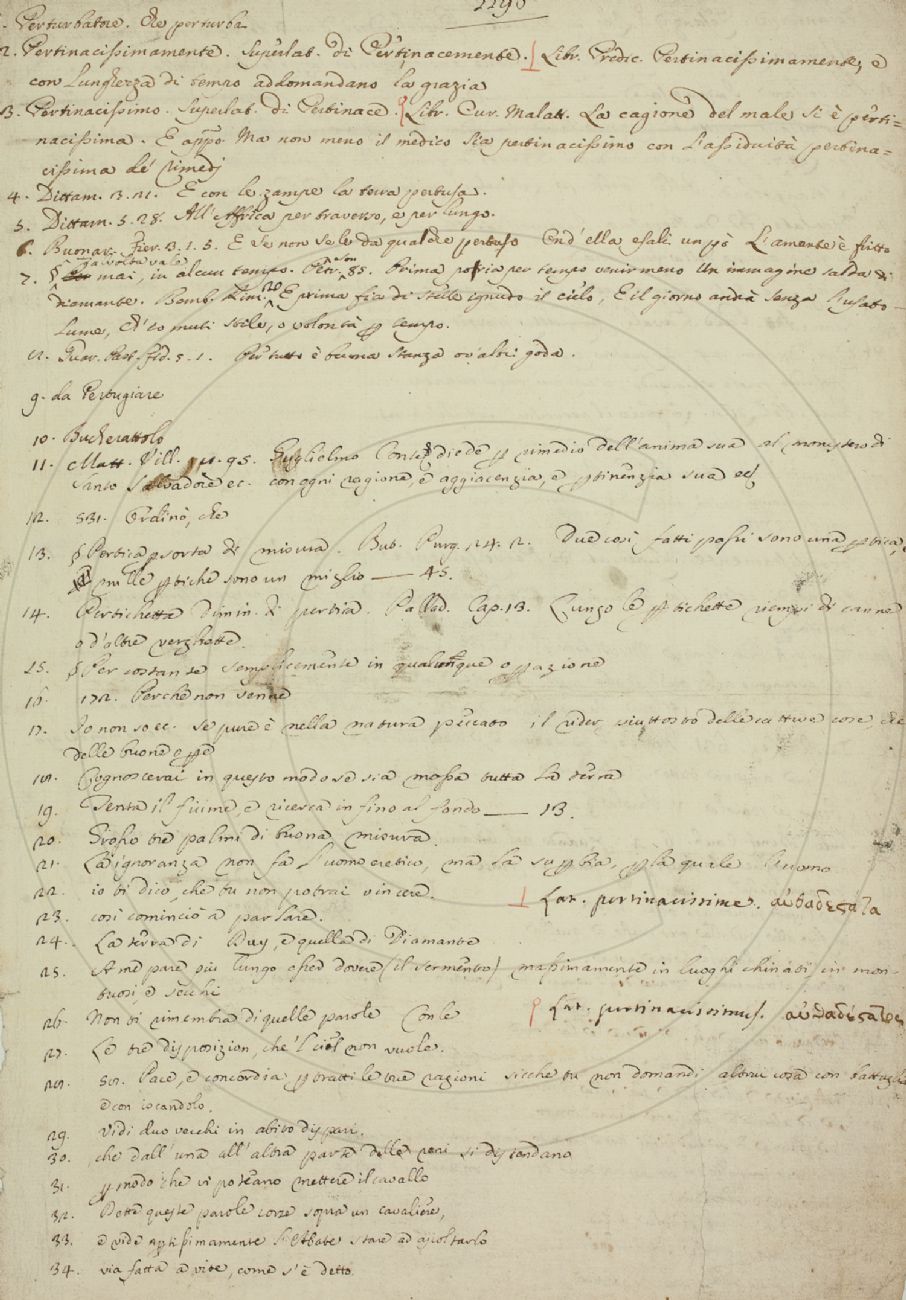 1198
1. Perturbatore. Che perturba
2. Pertinacissimamente. Superlat. di Pertinacemente. Libr. Predic. Pertinacissimamente, e
con lunghezza di tempo addomandano la grazia
3. Pertinacissimo. Superlat. di Pertinace. Libr. Cur. Malatt. La cagione del male si è perti-
nacissima. E appo. Ma non meno il medico sia pertinacissimo con l'assiduità pertina=
cissima de' rimedj
4. Dittam. 3. 21. E con le zampe la terra pertusa.
5. Dittam. 5. 28. All'Affrica per traverso, e per lungo.
6. Buonar. Fier. 3. 1. 5. E se non se le dà qualche pertuso Ond'ella esali un pò L'amante è fritto
talvolta vale
7. § mai, in alcun tempo. Petr. son. 85. Prima poria per tempo venir meno Un immagine salda di
diamante. Bemb. Rim. 20 E prima fia di stelle ignudo il cielo, E il giorno andrà senza l'usato
lume, ch'io muti stile, o volontà p tempo.
12. Guar. Past. fid. 5. 1. Per tutto è buona stanza ov'altri goda.
9. da Pertugiare
10. Bucherattolo
11. Matt. Vill. 95. Guglielmo Conte diede p rimedio dell'anima sua al monistero di
Santo Salvadore ec. con ogni ragione, e aggiacenzia, e ptinenzia sua ec
12. 331. Ordinò, che
13. § Pertica p sorta di misura. But. Purg. 24. 2. Due così fatti passi sono una ptica, e
mille ptiche sono un miglio — 45.
14. Pertichetta Dimin. di pertica. Pallad. Cap. 13. Lungo le ptichette riempi di canne
o d'altre verghette.
15. § Per costante semplicemente in qualunque opazione
16. 172. Perchè non venne
17. Io non so ec. se pure è nella natura peccato il rider piuttosto delle cattive cose, che
delle buone o pe
18. Cognoscerai in questo modo se sia mossa tutta la terra
19. Tenta il fiume, e ricerca infino al fondo — 13.
20. Grosso tre palmi di buona misura.
21. La ignoranza non fa l'uomo eretico, ma la supbia, p la quale l'uomo
22. io ti dico, che tu non potrai vincere. Lat. pertinacissime. αὐθαδέστατα
23. così cominciò a parlare.
24. La terra di Bay, e quella di Diamante
25. A me pare più lungo esser dovere (il sermento) massimamente in luoghi chinati, in mon-
tuosi, e secchi
26. Non ti rimembra di quelle parole Con le Lat. pertinacissimus. αὐθαδέστατος
27. Le tre disposizion, che'l ciel non vuole.
28. 50. Pace, e concordia p tratti le tue ragioni sicchè tu non domandi altrui cosa con battaglia
e con iscandolo.
29. Vidi duo vecchi in abito dispari.
30. che dall'una all'altra parte delle reni si distendano
31. p modo che vi poteano mettere il cavallo
32. Dette queste parole corse sopra un cavaliere,
33. e vide aptissimamente l'Abate stare ad ascoltarlo
34. via fatta a vite, come s'è detto.